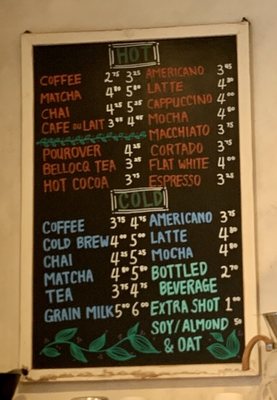 HOT
COFFEE 2.75 3.25
MATCHA 4.80 5.80
CHAI 4.25 5.25
CAFE DU LAIT 3.95 4.95
POUROVER 4.25
BELLOCQ TEA 3.25
HOT COCOA 3.75
AMERICANO 3.45
LATTE 4.30
CAPPUCCINO 4.00
MOCHA 4.80
MACCHIATO 3.75
CORTADO 3.75
FLAT WHITE 4.00
ESPRESSO 3.25
COLD
COFFEE 3.75 4.75
COLD BREW 4.00 5.00
CHAI 4.25 5.25
MATCHA 4.80 5.80
TEA 3.75 4.75
GRAIN MILK 5.00 6.00
AMERICANO 3.75
LATTE 4.80
MOCHA 4.80
BOTTLED
BEVERAGE 2.70
EXTRA SHOT 1.00
SOY/ALMOND .50
& OAT